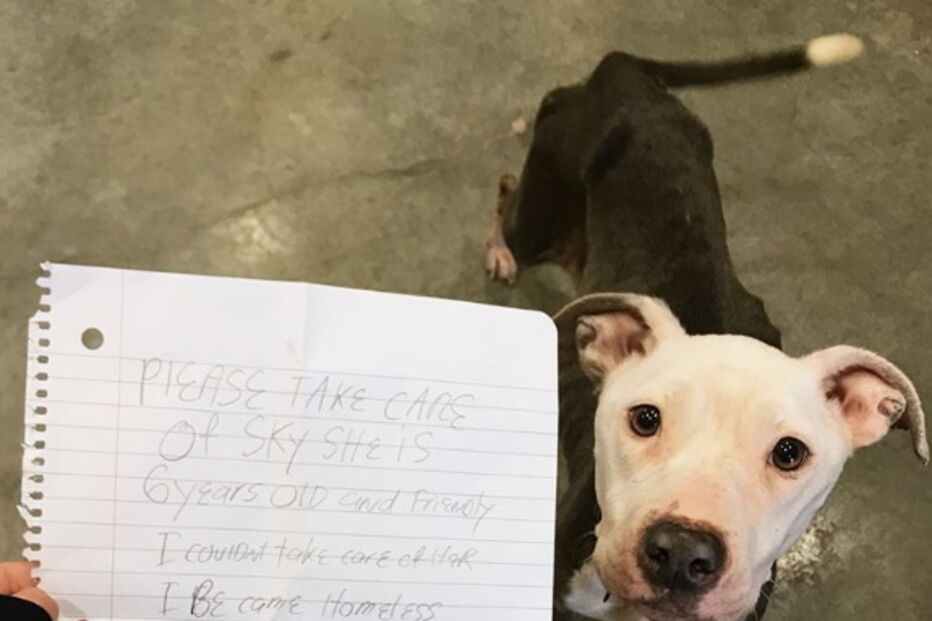 PlEASE TAKE CARE
Of SKY SHE iS
6 years OlD and Friendly
I couldnt take care of HER
I BE came Homeless